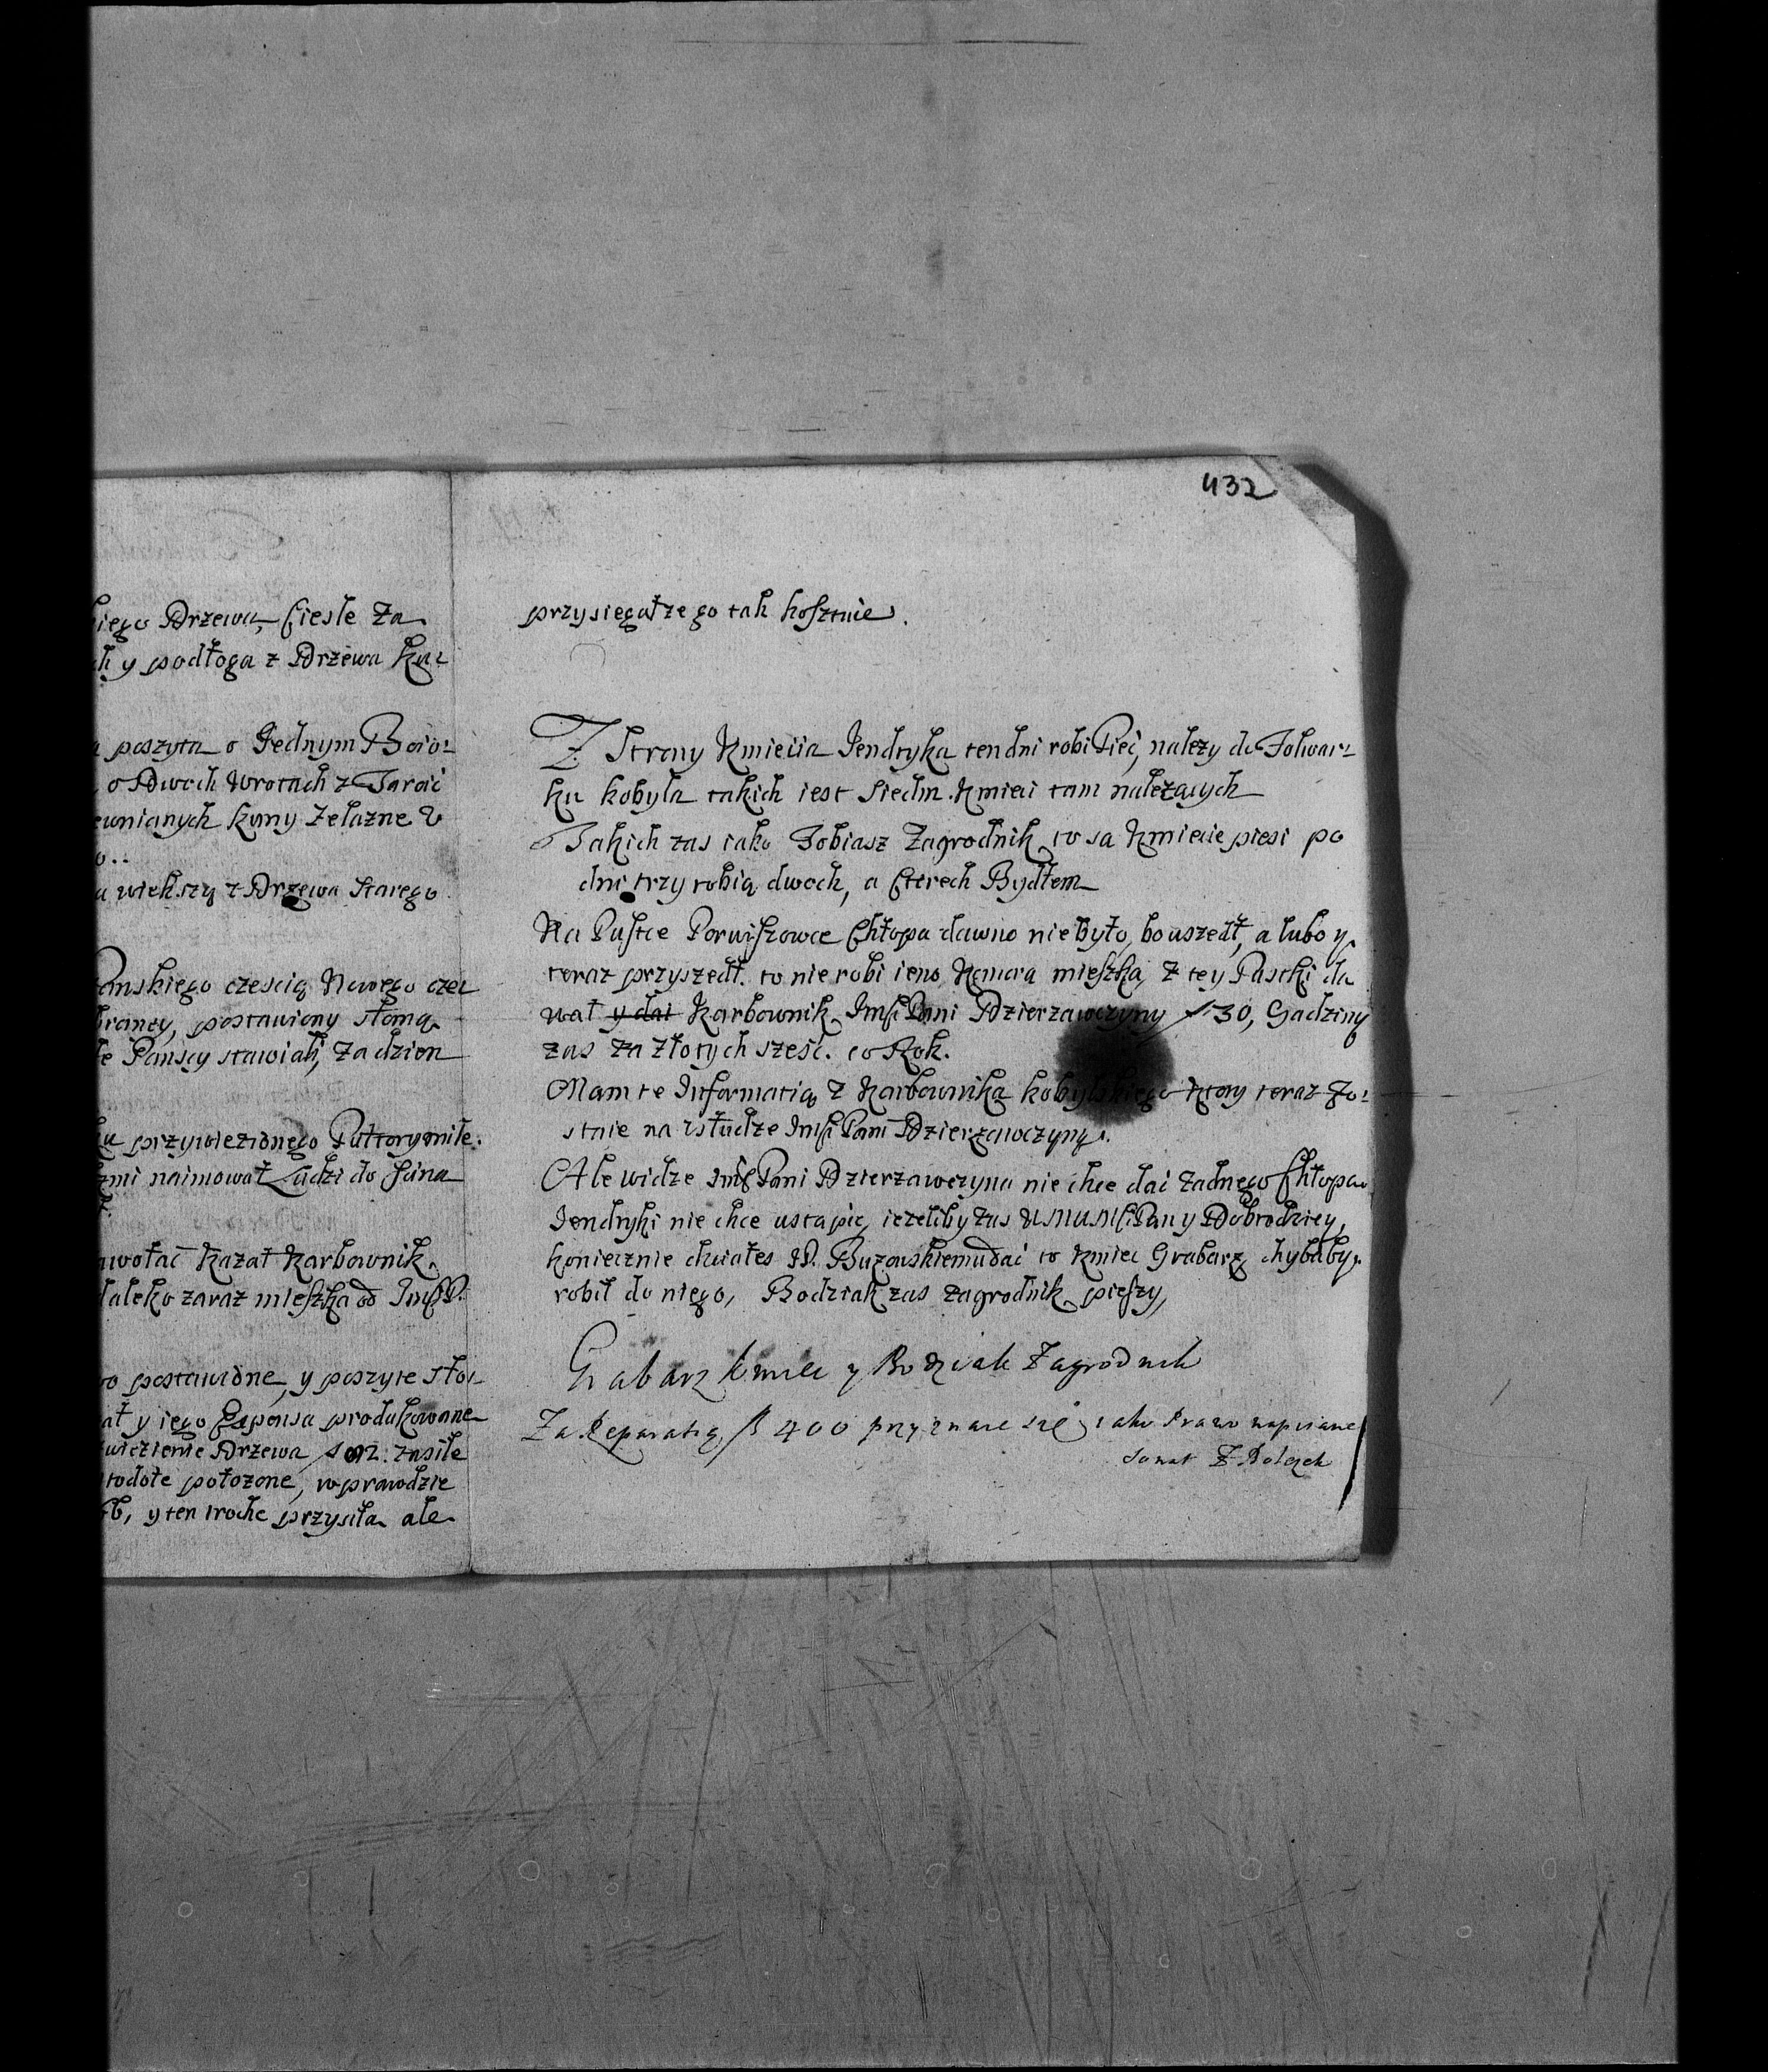 432
kiego Drzewa, Ciesle Za
ch y podłoga z Drzewa Ku:
poszyta o Jednym Boio:
o Dwoch Wrotach z Tarcic
ewnianych kuny Zelazne v
wiekszą z Drzewa Starego
Panskiego czescią Nowego czę
braney, postawiony słomą
Panscy stawiali, Za dzien
przywiezionego Pułtorymile.
naimował Ludzi do Sina
wołać Kazał Karbownik
daleko zaraz mieszka od ImśP.
postawione, y poszyte sło:
ał y iego Expensa produkowane
wiezienie Drzewa f 02. zasile
stodole położone, wprawdzie
y ten troche przysiła ale
przysiegał ze go tak kosztuie.
Z Strony Kmiecia Jendryka ten dni robi Pieć, nalezy do Folwar:
ku kobyla takich iest Siedm Kmieci tam nalezących
Takich zas iako Tobiasz Zagrodnik to sa Kmiecie piesi po
dni trzy robią dwoch, a Cterech Bydłem
Na Pustce Porwiszowce Chłopa dawno nie było, bo uszedł, a lubo y
teraz przyszedł. to nie robi ieno Komorą mieszka, Z tey Pustki da
wał y dai Karbownik Imśi Pani Dzierzawczyny f 30, Gadziny
zas za złotych sześć. co Rok.
Mam te Informatią z Karbownika kobylskiego ktory teraz Zo:
staie na usłudze Imśi Pani Dzierzawczyny.
Ale widze Imś Pani Dzierzawczyna nie chce dai Zadnego Chłopa
Jendryki nie chce ustąpic, iezeliby zas UMMMśi Pan y Dobrodziey,
koniecznie chciałes P. Buzowskiemu dać to kmiec Grabarz chybaby
robił do niego, Bodziak zas zagrodnik pieszy,
Grabarz kmiec y Bodziak Zagrodnik
Za Reparatią f 400 przyznaie się iako Prawo napisane